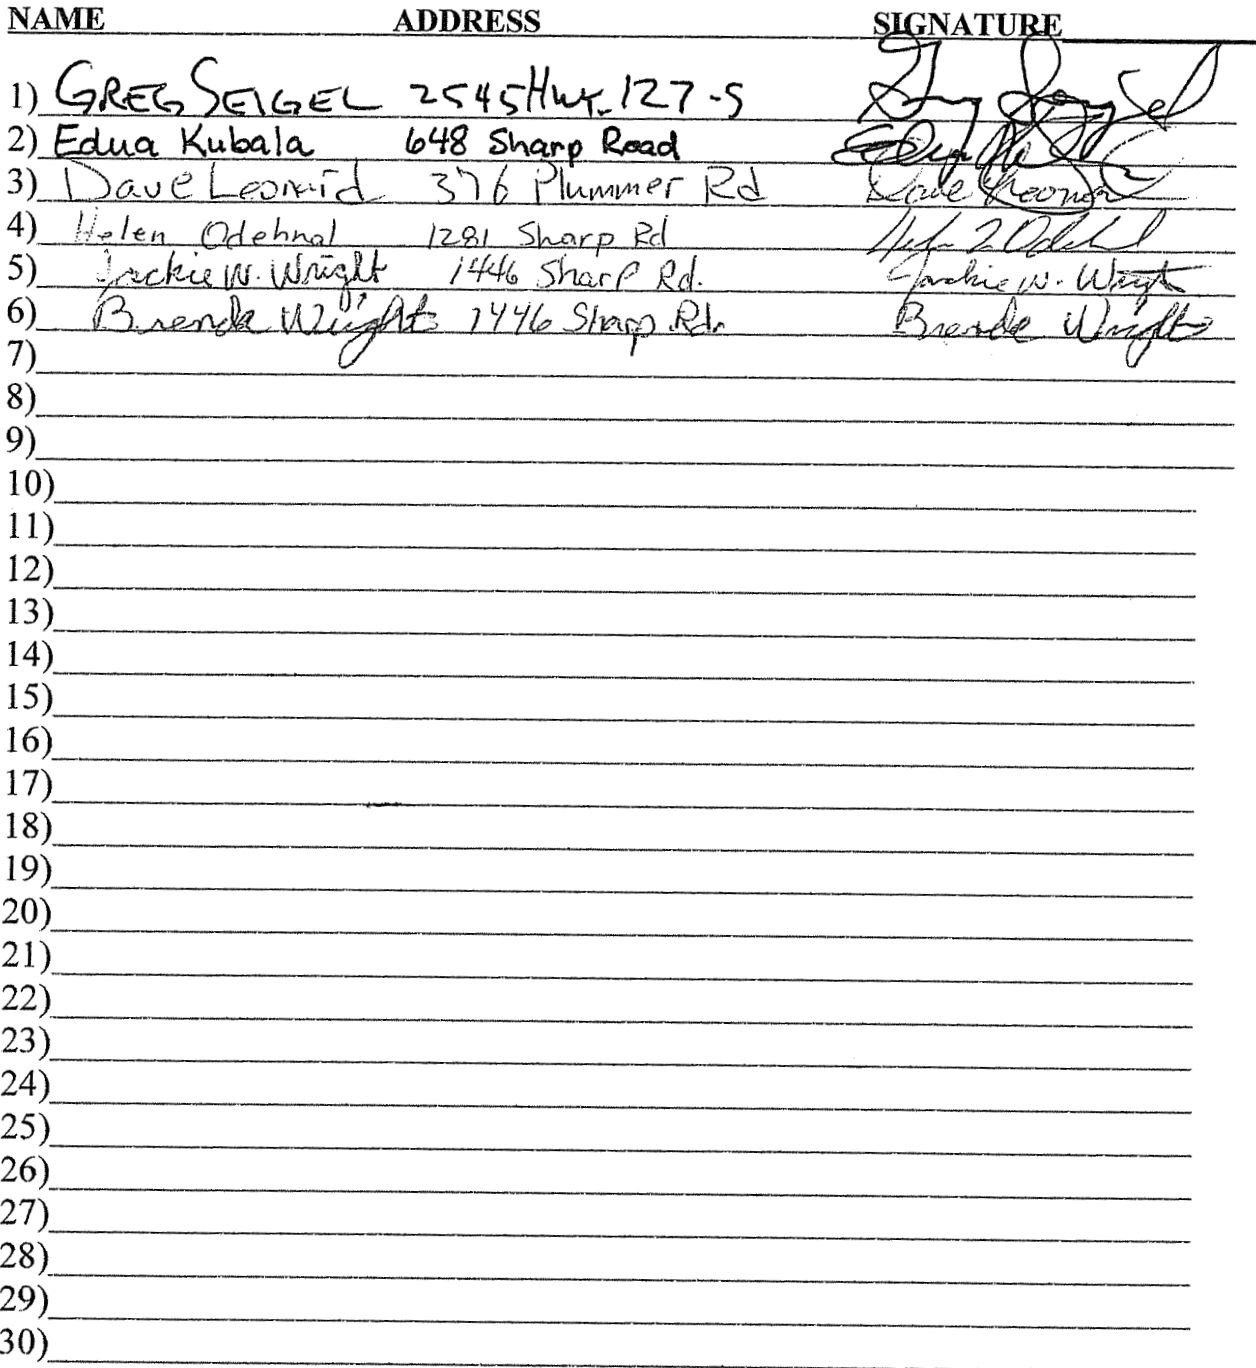 NAME ADDRESS SIGNATURE
1) GREG SEIGEL 2545 Hwy. 127-S
2) Edua Kubala 648 Sharp Road
3) Dave Leonard 376 Plummer Rd Dave Leonard
4) Helen Odehnal 1281 Sharp Rd
5) Jackie W. Wright 1446 Sharp Rd. Jackie W. Wright
6) Brenda Wright 1446 Sharp Rd. Brenda Wright
7)
8)
9)
10)
11)
12)
13)
14)
15)
16)
17)
18)
19)
20)
21)
22)
23)
24)
25)
26)
27)
28)
29)
30)